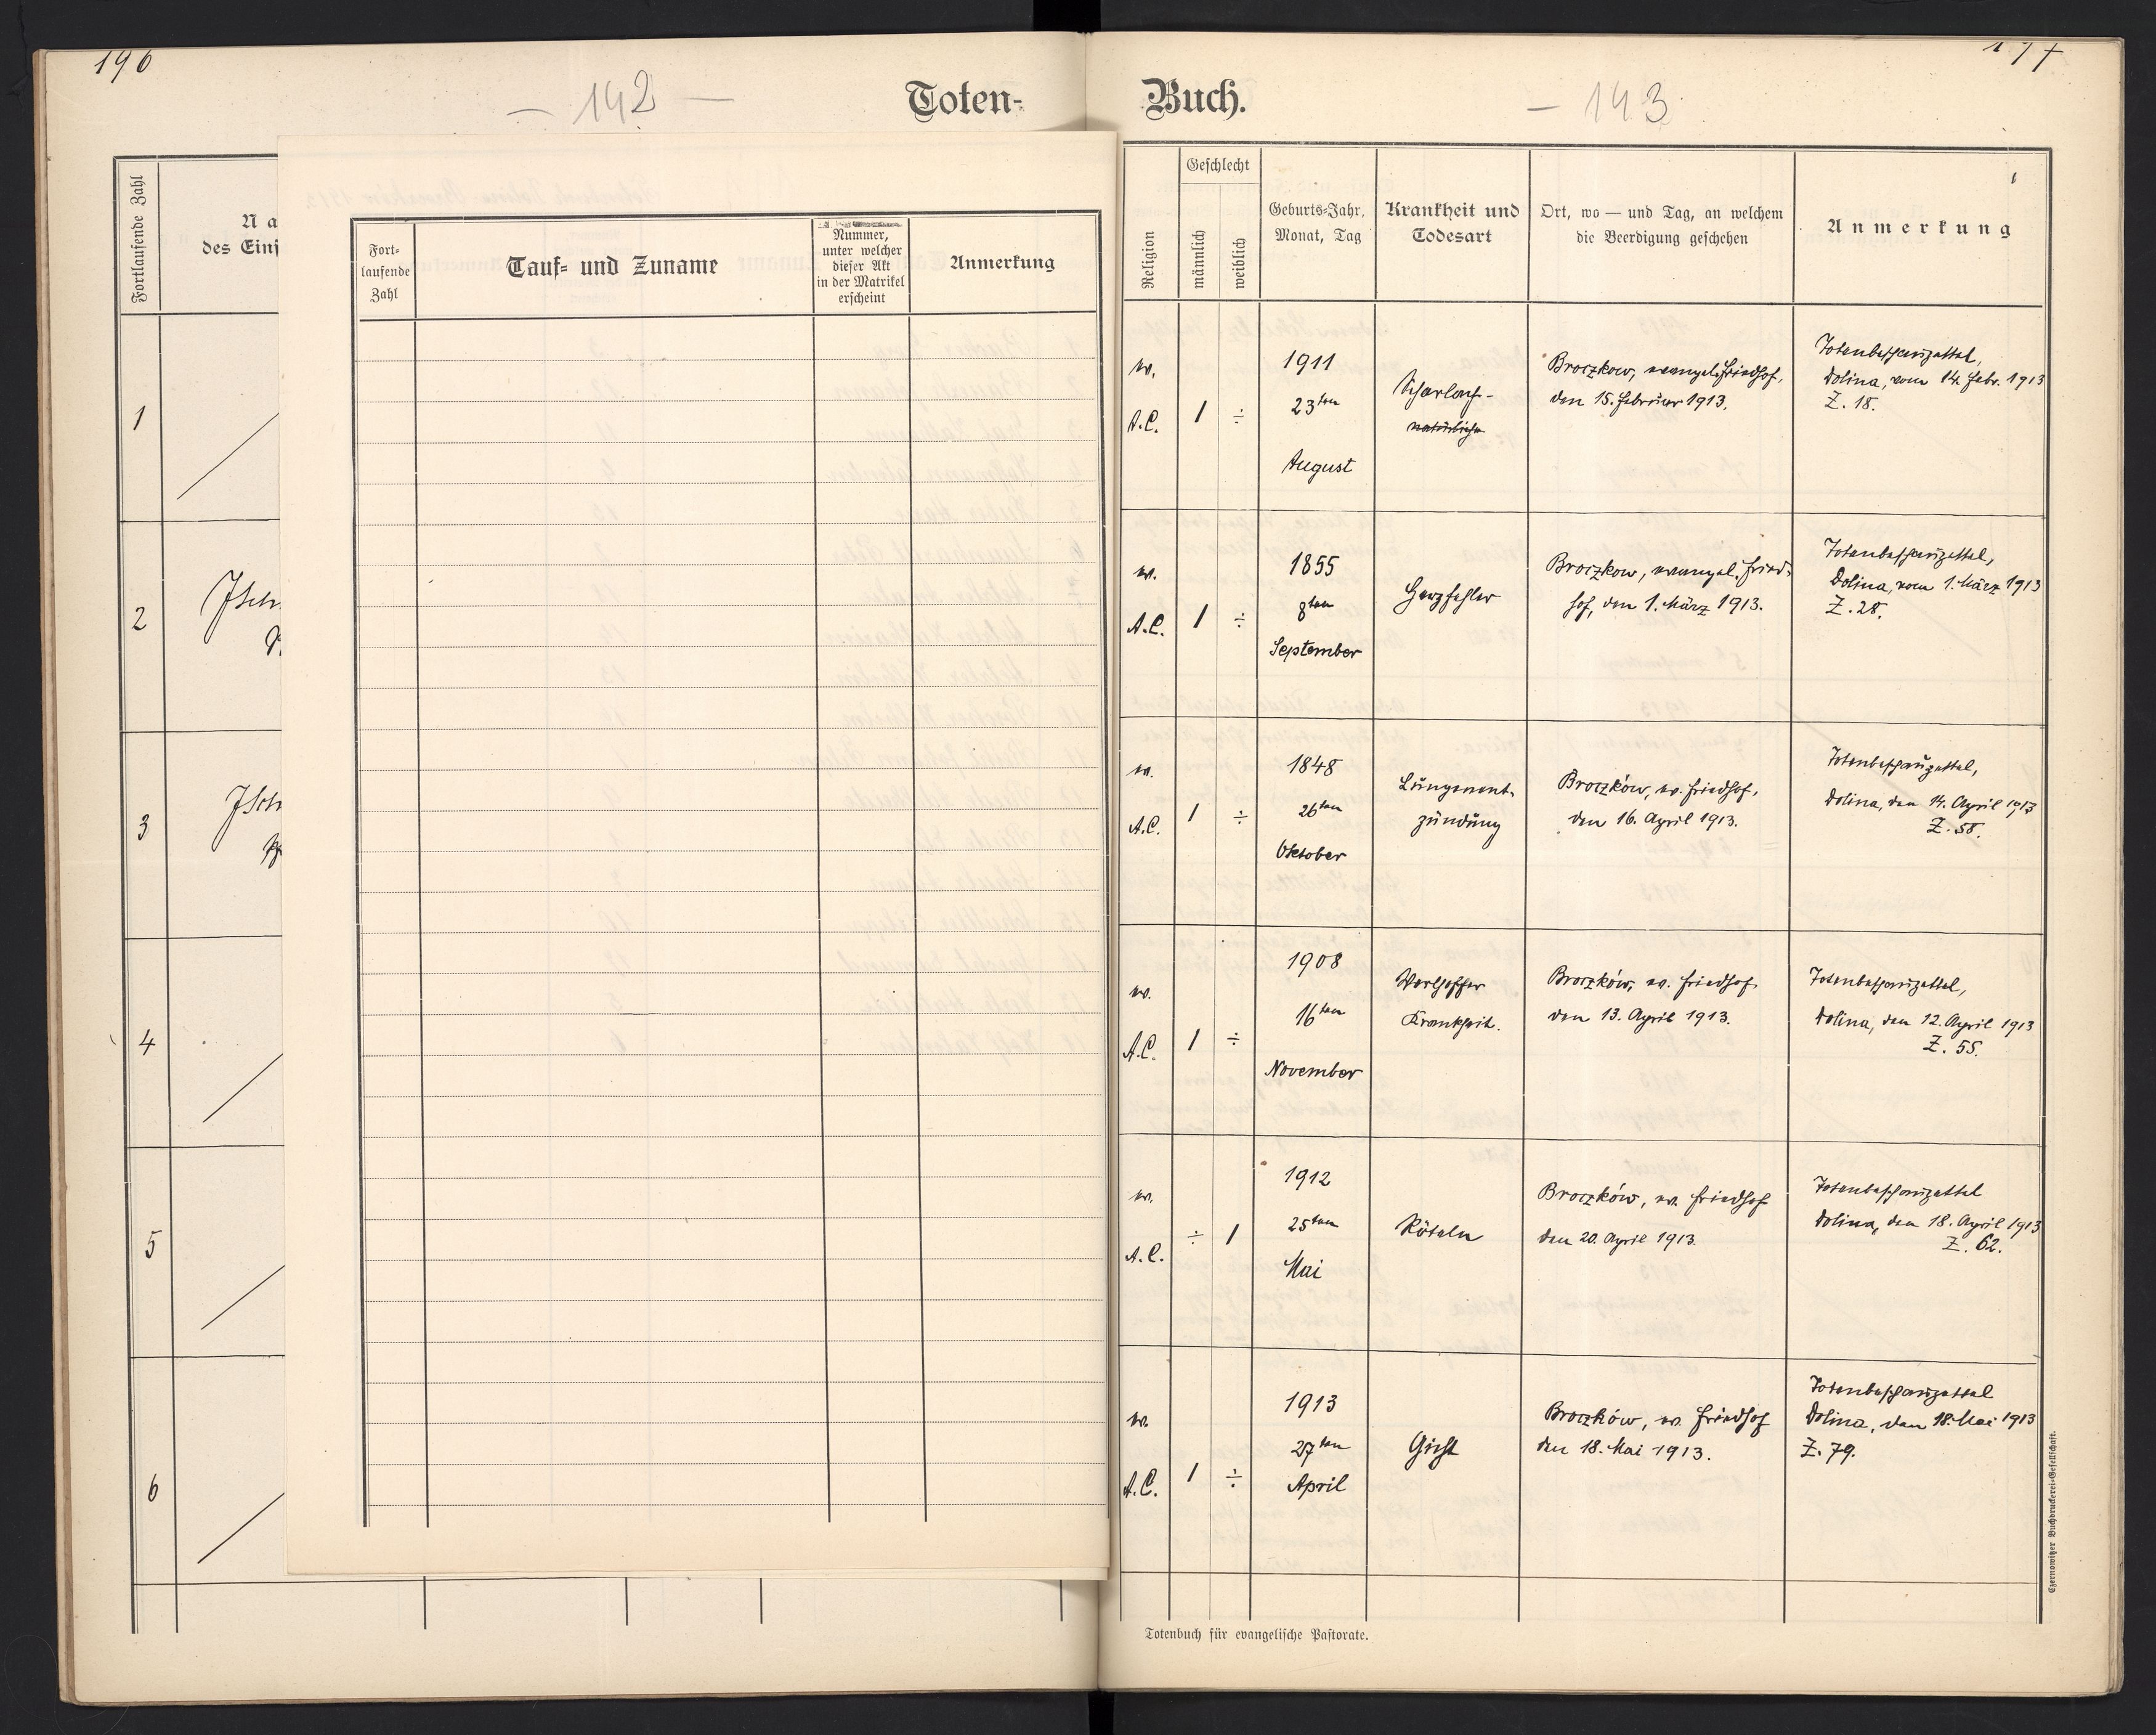 196
— 142 —
Toten-
Fortlaufende Zahl
Na
des Eins
1
2
Jsch
3
Jsch
4
5
6
Fort-
laufende
Zahl
Tauf- und Zuname
Nummer,
unter welcher
dieser Akt
in der Matrikel
erscheint
Anmerkung
177
Buch.
— 143
Religion
Geschlecht
männlich
weiblich
Geburts-Jahr,
Monat, Tag
Krankheit und
Todesart
Ort, wo — und Tag, an welchem
die Beerdigung geschehen
Anmerkung
ev.
A.C.
1
÷
1911
23ten
August
Scharlach-
Broczkow, evangel. Friedhof,
den 15. Februar 1913.
Totenbeschauzettel,
Dolina, vom 14. Febr. 1913
Z. 18.
ev.
A.C.
1
÷
1855
8ten
September
Herzfehler
Broczkow, evangel. Fried-
hof, den 1. März 1913.
Totenbeschauzettel,
Dolina, vom 1. März 1913
Z. 28.
ev.
A.C.
1
÷
1848
26ten
Oktober
Lungenent-
zündung
Broczków, ev. Friedhof,
den 16. April 1913.
Totenbeschauzettel,
Dolina, den 14. April 1913
Z. 58.
ev.
A.C.
1
÷
1908
16ten
November
Werlhoffer
Krankheit.
Broczków, ev. Friedhof
den 13. April 1913.
Totenbeschauzettel,
Dolina, den 12. April 1913
Z. 55.
ev.
A.C.
÷
1
1912
25ten
Mai
Röteln
Broczków, ev. Friedhof
den 20. April 1913.
Totenbeschauzettel
Dolina, den 18. April 1913
Z. 62.
ev.
A.C.
1
÷
1913
27ten
April
Gicht
Broczków, ev. Friedhof
den 18. Mai 1913.
Totenbeschauzettel
Dolina, den 18. Mai 1913
Z. 79.
Totenbuch für evangelische Pastorate.
Czernowitzer Buchdruckerei-Gesellschaft.